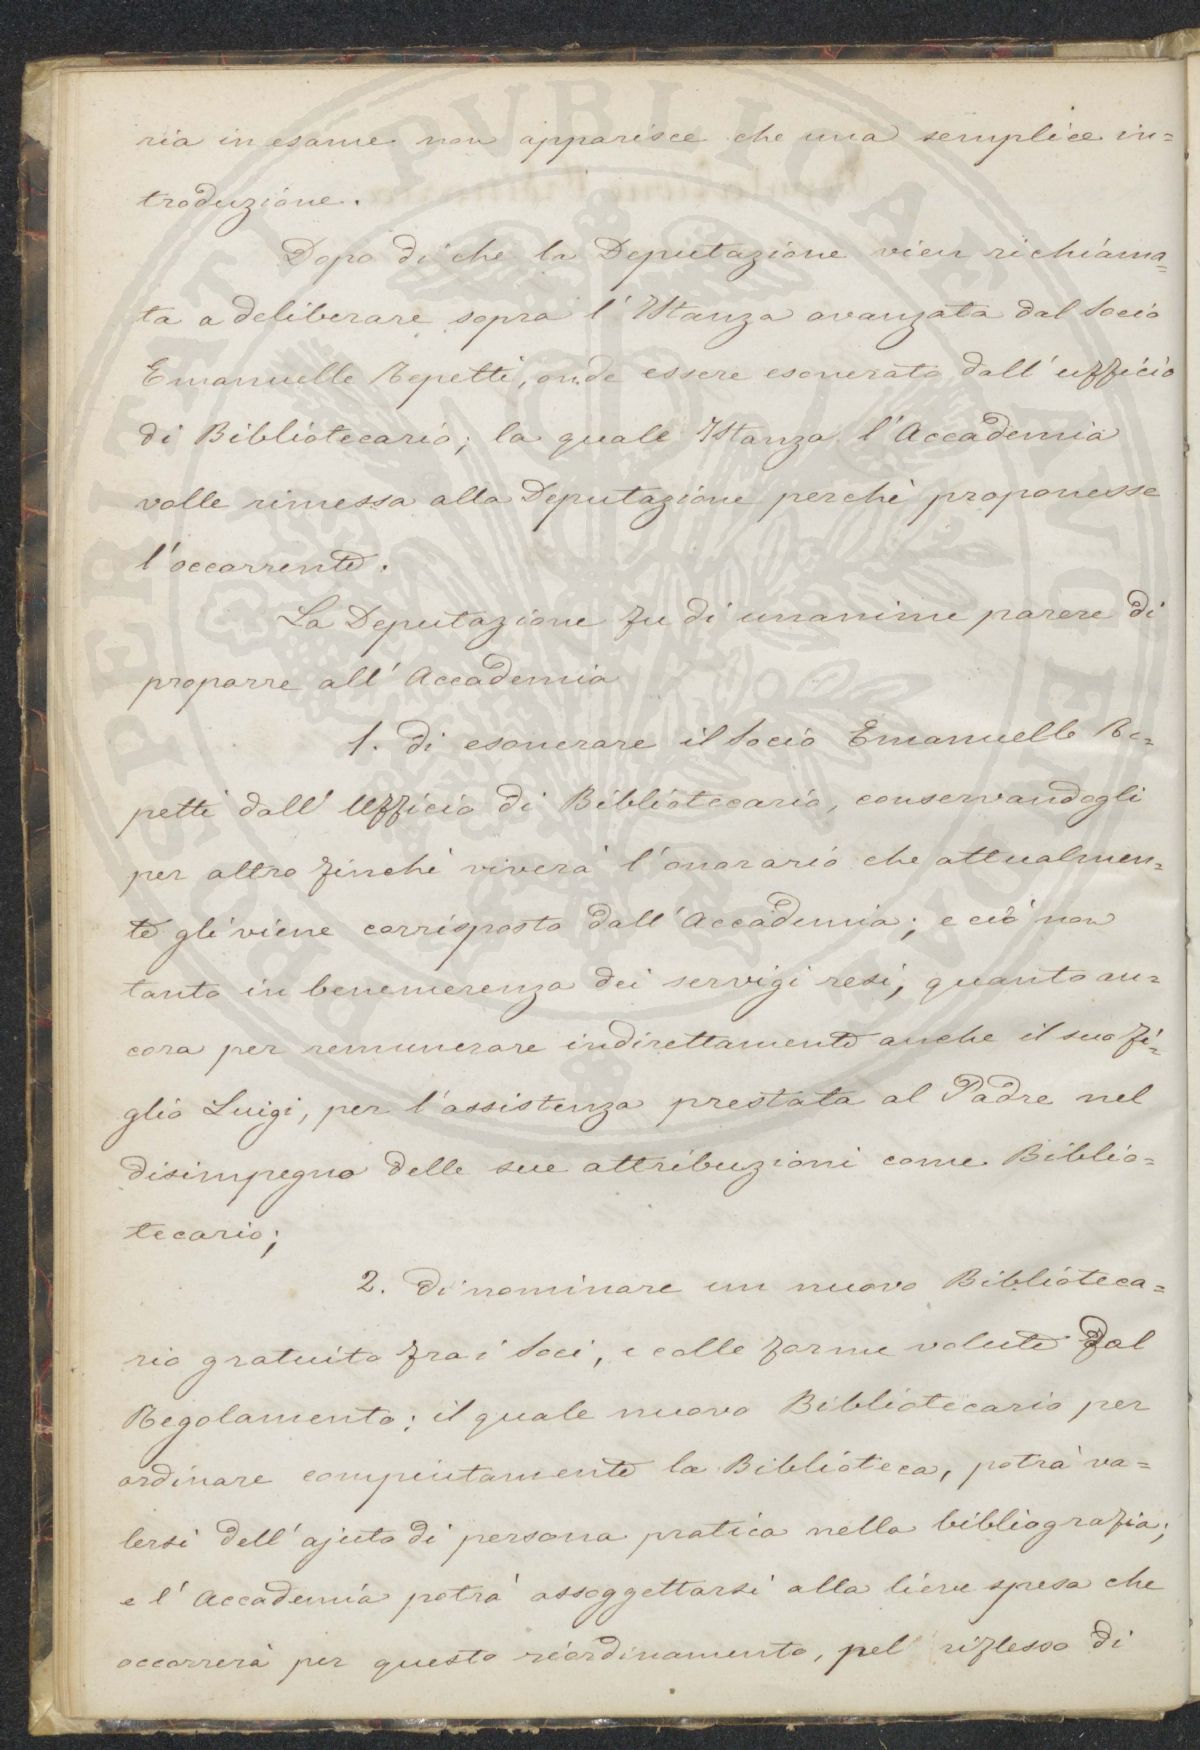 ria in esame non apparisce che una semplice in=
troduzione.
Dopo di che la Deputazione vien richiama=
ta a deliberare sopra l'Istanza avanzata dal Socio
Emanuelle Repetti, onde essere esonerato dall'ufficio
di Bibliotecario; la quale Istanza l'Accademia
volle rimessa alla Deputazione perchè proponesse
l'occorrente.
La Deputazione fu di unanime parere di
proporre all'Accademia
1. di esonerare il Socio Emanuelle Re=
petti dall'Ufficio di Bibliotecario, conservandogli
per altro finchè viverà l'onorario che attualmen=
te gli viene corrisposto dall'Accademia; e ciò non
tanto in benemerenza dei servigi resi, quanto an=
cora per remunerare indirettamente anche il suo fi=
glio Luigi, per l'assistenza prestata al Padre nel
disimpegno delle sue attribuzioni come Biblio=
tecario;
2. di nominare un nuovo Biblioteca=
rio gratuito fra i Soci, e colle forme volute dal
Regolamento; il quale nuovo Bibliotecario per
ordinare compiutamente la Biblioteca, potrà va=
lersi dell'ajuto di persona pratica nella bibliografia;
e l'Accademia potrà assoggettarsi alla lieve spesa che
occorrerà per questo riordinamento, pel riflesso di
PROSPERITATI PVBLICAE AVGENDAE